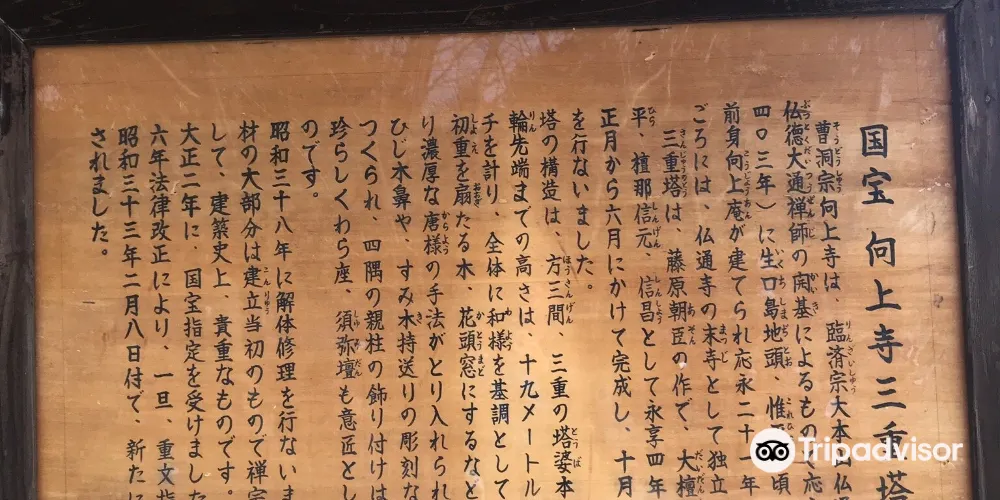 国宝 向上寺三重塔
曹洞宗向上寺は、臨済宗大本山仏
仏徳大通禅師の開基によるもので応
四〇三年)に生口島地頭、惟 頃
前身向上庵が建てられ応永二十一年
ごろには、仏通寺の末寺として独立
三重塔は、藤原朝臣の作で、大檀
平、檀那信元、信昌として永享四年
正月から六月にかけて完成し、十月
を行ないました。
塔の構造は、方三間、三重の塔婆本
輪先端までの高さは、十九メートル
チを計り、全体に和様を基調として
初重を扇たる木、花頭窓にするなど
り濃厚な唐様の手法がとり入れられ
ひじ木鼻や、すみ木持送りの彫刻な
つくられ、四隅の親柱の飾り付けは
珍らしくわら座、須弥壇も意匠とし
のです。
昭和三十八年に解体修理を行ないま
材の大部分は建立当初のもので禅宗
して、建築史上、貴重なものです。
大正二年に、国宝指定を受けました
六年法律改正により、一旦、重文指
昭和三十三年二月八日付で、新たに
されました。
Tripadvisor